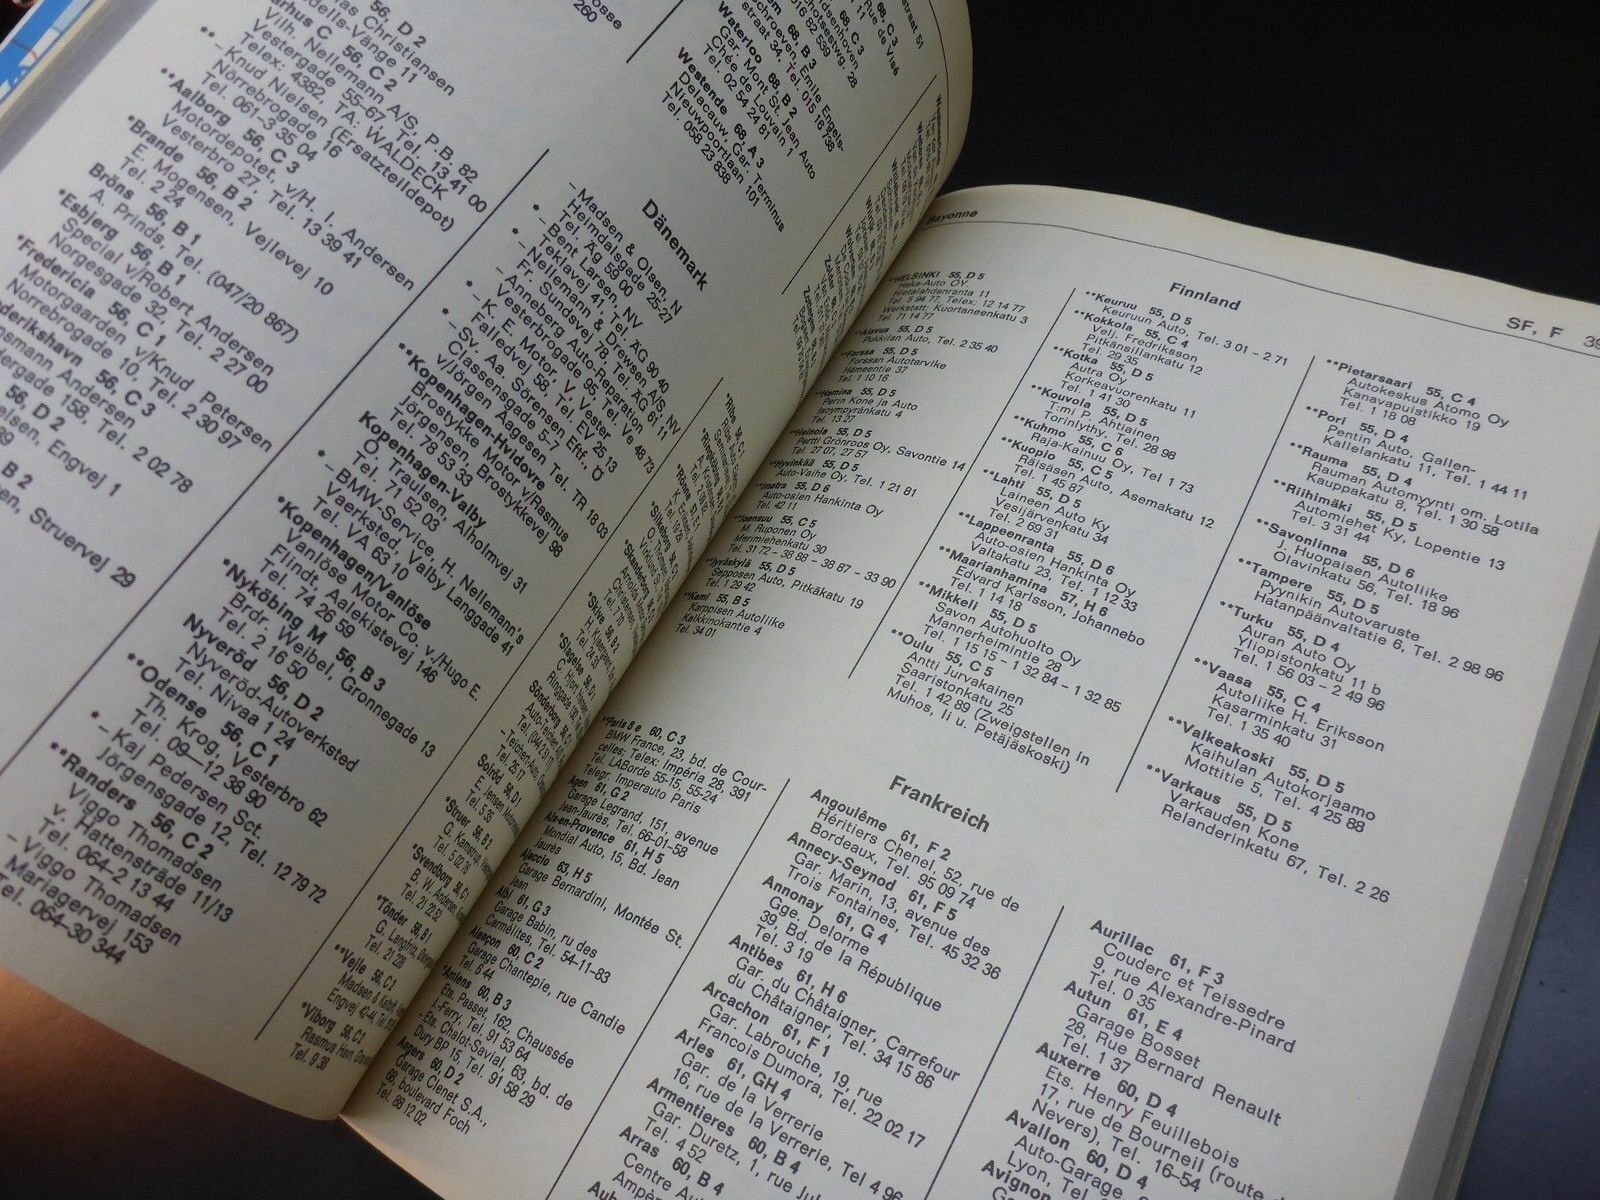 56, D 2
Vilh. Nellemann A/S, P.B. 82
Vestergade 55–67, Tel. 13 41 00
Telex: 4382, TA: WALDECK
**– Knud Nielsen (Ersatzteildepot)
Nörrebrogade 16
Tel. 061–3 35 04
**Aalborg 56, C 3
Motordepotet, v/H. I. Andersen
Vesterbro 27, Tel. 13 39 41
*Brande 56, B 2
E. Mogensen, Vejlevej 10
Tel. 2 24
Bröns 56, B 1
A. Prinds, Tel. (047/20 867)
*Esbjerg 56, B 1
Special v/Robert Andersen
Norgesgade 32, Tel. 2 27 00
*Fredericia 56, C 1
Motorgaarden v/Knud Petersen
Norrebrogade 10, Tel. 2 30 97
56, C 3
158, Tel. 2 02 78
56, D 2
Engvej 1
B 2
Struervej 29
Dänemark
– Madsen & Olsen, N
Heimdalsgade 25-27
Tel. Äg 59 00
*– Bent Larsen, NV
Teklavej 41, Tel. ÄG 90 40
*– Nellemann & Drewsen A/S, NV
Fr. Sundsvej 78, Tel. ÄG 61 11
– Anneberg Auto-Reparation,
Vesterbrogade 95, Tel. Ve 48 73
*– K. E. Motor, V, Vester
Falledvej 58, Tel. EV 25 13
*– Sv. Aa. Sörensen Eftf., Ö
Classensgade 5–7
v/Jörgen Aagesen Tel. TR 18 03
**Kopenhagen-Hvidovre
Brostykke Motor v/Rasmus
Jörgensen, Brostykkevej 98
Tel. 78 53 33
Kopenhagen-Valby
O. Traulsen, Alholmvej 31
Tel. 71 52 03
*– BMW-Service, H. Nellemann's
Vaerksted, Valby Langgade 41
Tel. VA 63 10
*Kopenhagen/Vanlöse
Vanlöse Motor Co. v./Hugo E.
Flindt, Aalekistevej 146
Tel. 74 26 59
*Nyköbing M 56, B 3
Brdr. Weibel, Gronnegade 13
Tel. 2 16 50
Nyveröd 56, D 2
Nyveröd-Autoverksted
Tel. Nivaa 1 24
**Odense 56, C 1
Th. Krog, Vesterbro 62
Tel. 09–12 38 90
*– Kaj Pedersen Sct.
Jörgensgade 12, Tel. 12 79 72
**Randers 56, C 2
Viggo Thomadsen
v. Hattenstræde 11/13
Tel. 064–2 13 44
– Viggo Thomadsen
Mariagervej 153
Tel. 064–30 344
Waterloo 68, B 2
Gar. Mont St. Jean Auto
Chée de Louvain 1
Tel. 02 54 24 81
Westende 68, A 3
Delacauw, Gar. Terminus
Nieuwpoortlaan 101
Tel. 058 23 838
*Struer 56, B 2
Tel. 5 02 76
*Svendborg 56, C 1
Tel. 21 22 52
*Tönder 56, B 1
Tel. 21 228
**Vejle 56, C 2
*Viborg 56, C 2
Tel. 9 39
Bayonne
SF, F 39
Finnland
**HELSINKI 55, D 5
Haka-Auto OY.
Hietalahdenranta 11
Tel. 5 94 77, Telex: 12 14 77
Werkstatt: Kuortaneenkatu 3
Tel. 71 14 77
**Alavus 55, D 5
Pukkilan Auto, Tel. 2 35 40
**Forssa 55, D 5
Forssan Autotarvike
Hämeentie 37
Tel. 1 10 16
**Hamina 55, D 5
Perin Kone ja Auto
Isoympyränkatu 4
Tel. 13 27
**Heinola 55, D 5
Pertti Grönroos Oy, Savontie 14
Tel. 27 07, 27 57
**Hyvinkää 55, D 5
Auto-Vaihe Oy, Tel. 1 21 81
**Imatra 55, D 6
Auto-osien Hankinta Oy
Tel. 42 11
**Joensuu 55, C 5
M. Ruponen Oy
Merimiehenkatu 30
Tel. 31 72 – 38 88 – 38 87 – 33 90
**Jyväskylä 55, D 5
Sepposen Auto, Pitkäkatu 19
Tel. 1 29 42
**Kemi 55, B 5
Karppisen Autoliike
Kalkkinokantie 4
Tel. 34 01
**Keuruu 55, D 5
Keuruun Auto, Tel. 3 01 – 2 71
**Kokkola 55, C 4
Velj. Fredriksson
Pitkänsillankatu 12
Tel. 29 35
**Kotka 55, D 5
Autra Oy
Korkeavuorenkatu 11
Tel. 1 41 30
**Kouvola 55, D 5
T:mi P. Ahtiainen
Torinlythy. Tel. 28 98
**Kuhmo 55, C 6
Raja-Kainuu Oy, Tel 1 73
**Kuopio 55, C 5
Räisäsen Auto, Asemakatu 12
Tel. 1 45 87
**Lahti 55, D 5
Laineen Auto Ky
Vesijärvenkatu 34
Tel. 2 69 31
**Lappeenranta 55, D 6
Auto-osien Hankinta Oy
Valtakatu 23, Tel. 1 12 33
**Maarianhamina 57, H 6
Edvard Karlsson, Johannebo
Tel. 1 14 18
**Mikkeli 55, D 5
Savon Autohuolto Oy
Mannerheimintie 28
Tel. 1 15 15 – 1 32 84 – 1 32 85
**Oulu 55, C 5
Antti Jurvakainen
Saaristonkatu 25
Tel. 1 42 89 (Zweigstellen in
Muhos, Ii u. Petäjäskoski)
**Pietarsaari 55, C 4
Autokeskus Atomo Oy
Kanavapuistikko 19
Tel. 1 18 08
**Pori 55, D 4
Pentin Auto, Gallen-
Kallelankatu 11, Tel. 1 44 11
**Rauma 55, D 4
Rauman Automyynti om. Lotila
Kauppakatu 8, Tel. 1 30 58
**Riihimäki 55, D 5
Automiehet Ky, Lopentie 13
Tel. 3 31 44
**Savonlinna 55, D 6
J. Huopaisen Autoliike
Olavinkatu 56, Tel. 18 96
**Tampere 55, D 5
Pyynikin Autovaruste
Hatanpäänvaltatie 6, Tel. 2 98 96
**Turku 55, D 4
Auran Auto Oy
Yliopistonkatu 11 b
Tel. 1 56 03 – 2 49 96
**Vaasa 55, C 4
Autoliike H. Eriksson
Kasarminkatu 31
Tel. 1 35 40
**Valkeakoski 55, D 5
Kaihulan Autokorjaamo
Mottitie 5, Tel. 4 25 88
**Varkaus 55, D 5
Varkauden Kone
Relanderinkatu 67, Tel. 2 26
Frankreich
*Paris 8 e 60, C 3
BMW France, 23, bd. de Cour-
celles: Telex: Impéria 28, 391
Tel. LABorde 55-15, 55-24
Telegr. Imperauto Paris
Agen 61, G 2
Garage Legrand, 151, avenue
Jean-Jaurès, Tel. 66–01–58
Aix-en-Provence 61, H 5
Mondial Auto, 15, Bd. Jean
Jaurès
Ajaccio 63, H 5
Garage Bernardini, Montée St.
Jean
Albi 61, G 3
Garage Babin, ru des
Carmélites, Tel. 54–11–83
Alençon 60, C 2
Garage Chantepie, rue Candie
Tel. 6 44
*Amiens 60, B 3
Ets. Passet, 162, Chaussée
J.-Ferry, Tel. 91 53 64
– Ets. Chalot-Savial, 63, bd. de
Dury BP 15, Tel. 91 58 29
Angers 60, D 2
Garage Clenet S.A.,
68, boulevard Foch
Tel. 88 12 02
Angoulême 61, F 2
Héritiers Chenel, 52, rue de
Bordeaux, Tel. 95 09 74
Annecy-Seynod 61, F 5
Gar. Marin, 13, avenue des
Trois Fontaines, Tel. 45 32 36
Annonay 61, G 4
Gge. Delorme
39, Bd. de la République
Tel. 3 19
Antibes 61, H 6
Gar. du Châtaigner, Carrefour
du Châtaigner, Tel. 34 15 86
Arcachon 61, F 1
Gar. Labrouche, 19, rue
Francois Dumora, Tel. 22 02 17
Arles 61, GH 4
Gar. de la Verrerie
16, rue de la Verrerie, Tel 4 96
Armentieres 60, B 4
Gar. Duretz, 1, rue
Tel. 4 52
Arras 60, B 4
Aurillac 61, F 3
Couderc et Teissedre
9, rue Alexandre-Pinard
Tel. 0 35
Autun 61, E 4
Garage Bosset
28, Rue Bernard Renault
Tel. 1 37
Auxerre 60, D 4
Ets. Henry Feuillebois
17, rue de Bourneil (route de
Nevers), Tel. 16–54
Avallon 60, D 4
Auto-Garage
Lyon, Tel.
Avignon
Gar.